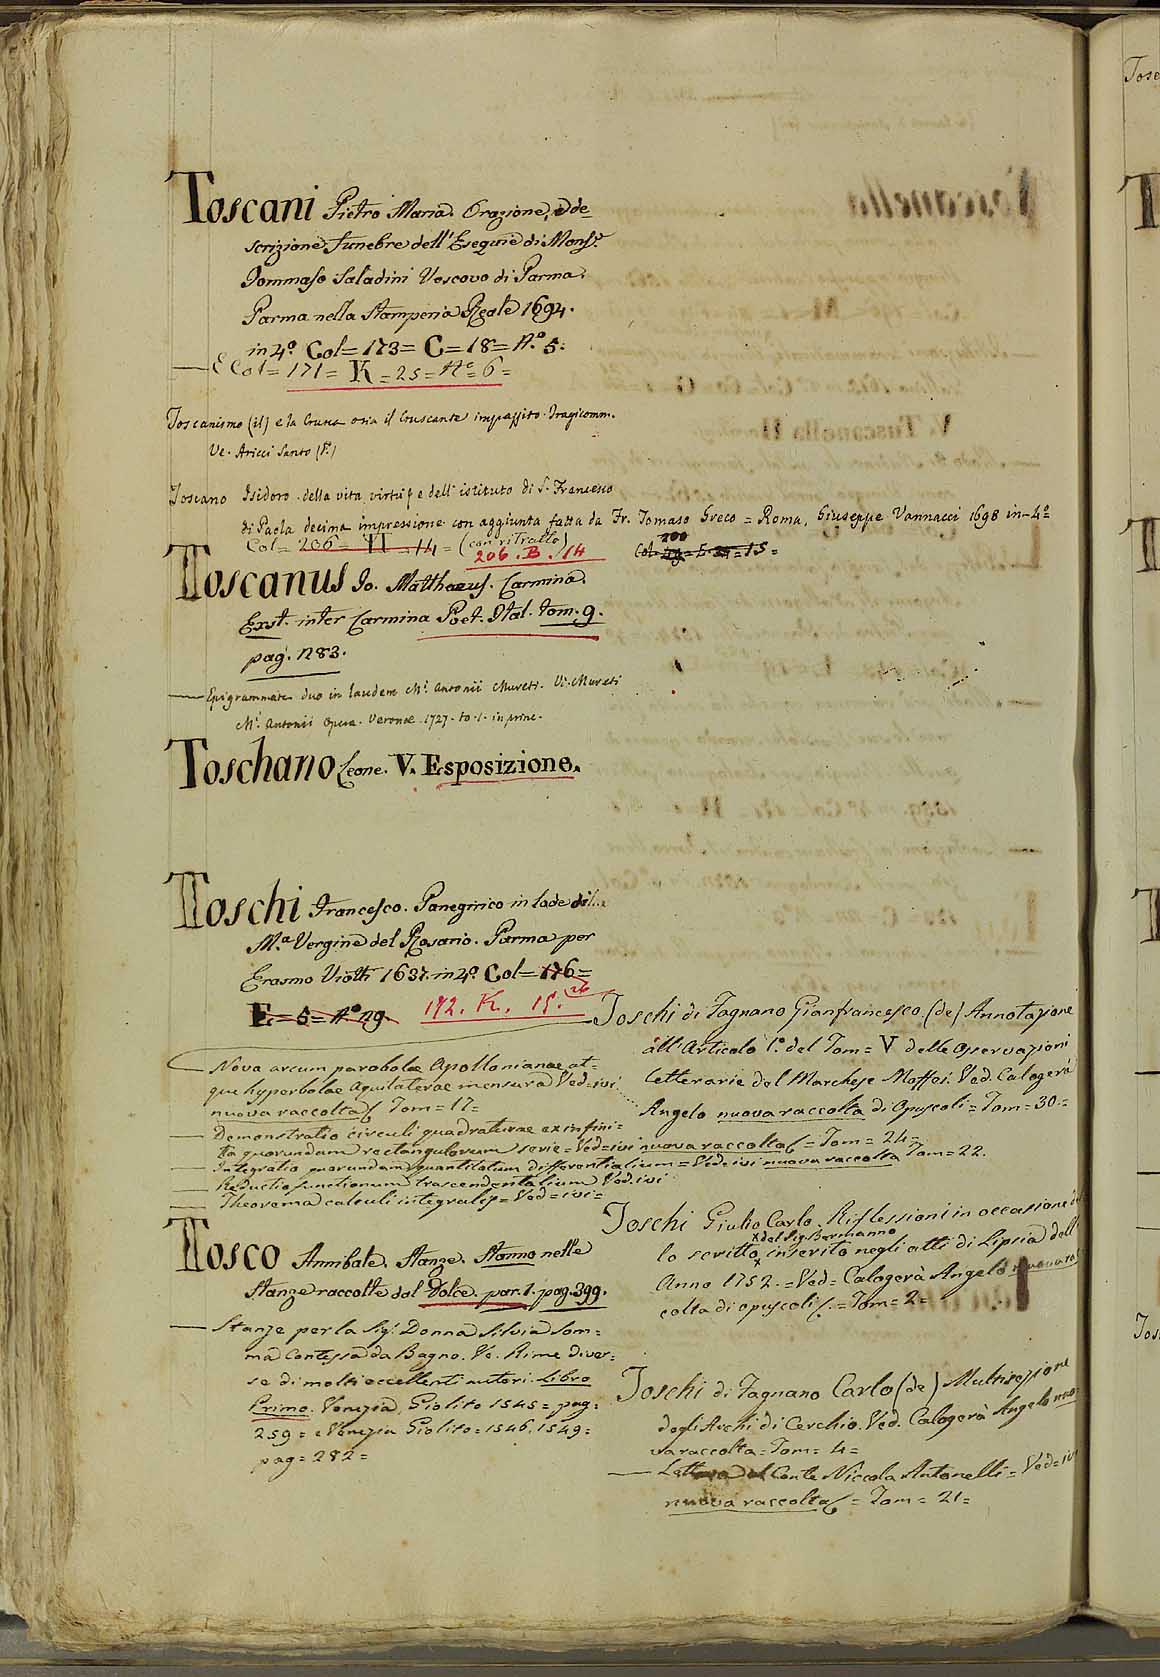 Toscani Pietro Maria. Orazione, e de=
scrizione funebre dell'Esequie di Monsr.
Tommaso Saladini Vescovo di Parma.
Parma nella Stamperia Reale 1694.
in 4º. Col= 173= C= 18= Nº 5.
— E Col= 171= K= 25= Nº 6=
Toscanismo (il) e la Crusca osia il Cruscante impazzito. Tragicomm.
Ve. Aricci Santo (P.)
Toscano Isidoro. della vita virtù e dell'istituto di S. Francesco
di Paola decima impressione con aggiunta fatta da Fr. Tomaso Greco = Roma, Giuseppe Vannacci 1698 in-4º
Col= 206= II = 14= (con ritratto)
206. B. 14
200
Col= = 15=
Toscanus Io. Matthaeus. Carmina.
Exst. inter Carmina Poet. Ital. tom. 9.
pag. 1283.
— Epigrammata duo in laudem M. Antonii Mureti. Vi. Mureti
M. Antonii Opera. Veronae 1727. to. 1. in princ.
Toschano Leone. V. Esposizione.
Toschi Francesco. Panegirico in lode di
M.a Vergine del Rosario. Parma per
Erasmo Viotti 1637. in 4º. Col= 176=
26
E.= 5= Nº 29
172. K. 15.
Nova arcum parabolae Apollonianae at=
que hyperbolae aquilaterae mensura Ved= ivi
nuova raccolta Tom= 17=
— Demonstratio circuli quadraturae ex infini=
ta quorundam rectangulorum serie= Ved= ivi nuova raccolta = Tom= 24=
— Integratio quorundam quantitatum differentialium = Ved= ivi nuova raccolta Tom= 22.
— Reductio functionum trascendentalium Ved. ivi
— Theorema calculi integralis= Ved= ivi=
Tosco Annibale. Stanze. Stanno nelle
Stanze raccolte dal Dolce. par. 1. pag. 399.
— Stanze per la Sig. Donna Silvia Som=
ma Contessa da Bagno. Ve. Rime diver=
se di molti eccellenti autori. Libro
Primo. Venezia, Giolito 1545= pag=
259= e Venezia Giolito= 1546. 1549=
pag= 282=
Toschi di Fagnano Gianfrancesco (de) Annotazione
all'Articolo 1º. del Tom= V delle Osservazioni
Letterarie del Marchese Maffei. Ved. Calogerà
Angelo nuova raccolta di Opuscoli= Tom= 30=
Toschi Giulio Carlo. Riflessioni in occasione
x del Sig. Bermanno
lo scritto x inserito negli atti di Lipsia dell'
Anno 1752. = Ved= Calogerà Angelo nuova rac
colta di opuscoli. = Tom= 2=
Toschi di Fagnano Carlo (de) Multisezione
degli Archi di Cerchio. Ved. Calogerà Angelo nuo
va raccolta= Tom= 4=
— Lettera al Conte Niccola Antonelli= Ved= ivi
nuova raccolta = Tom= 21=